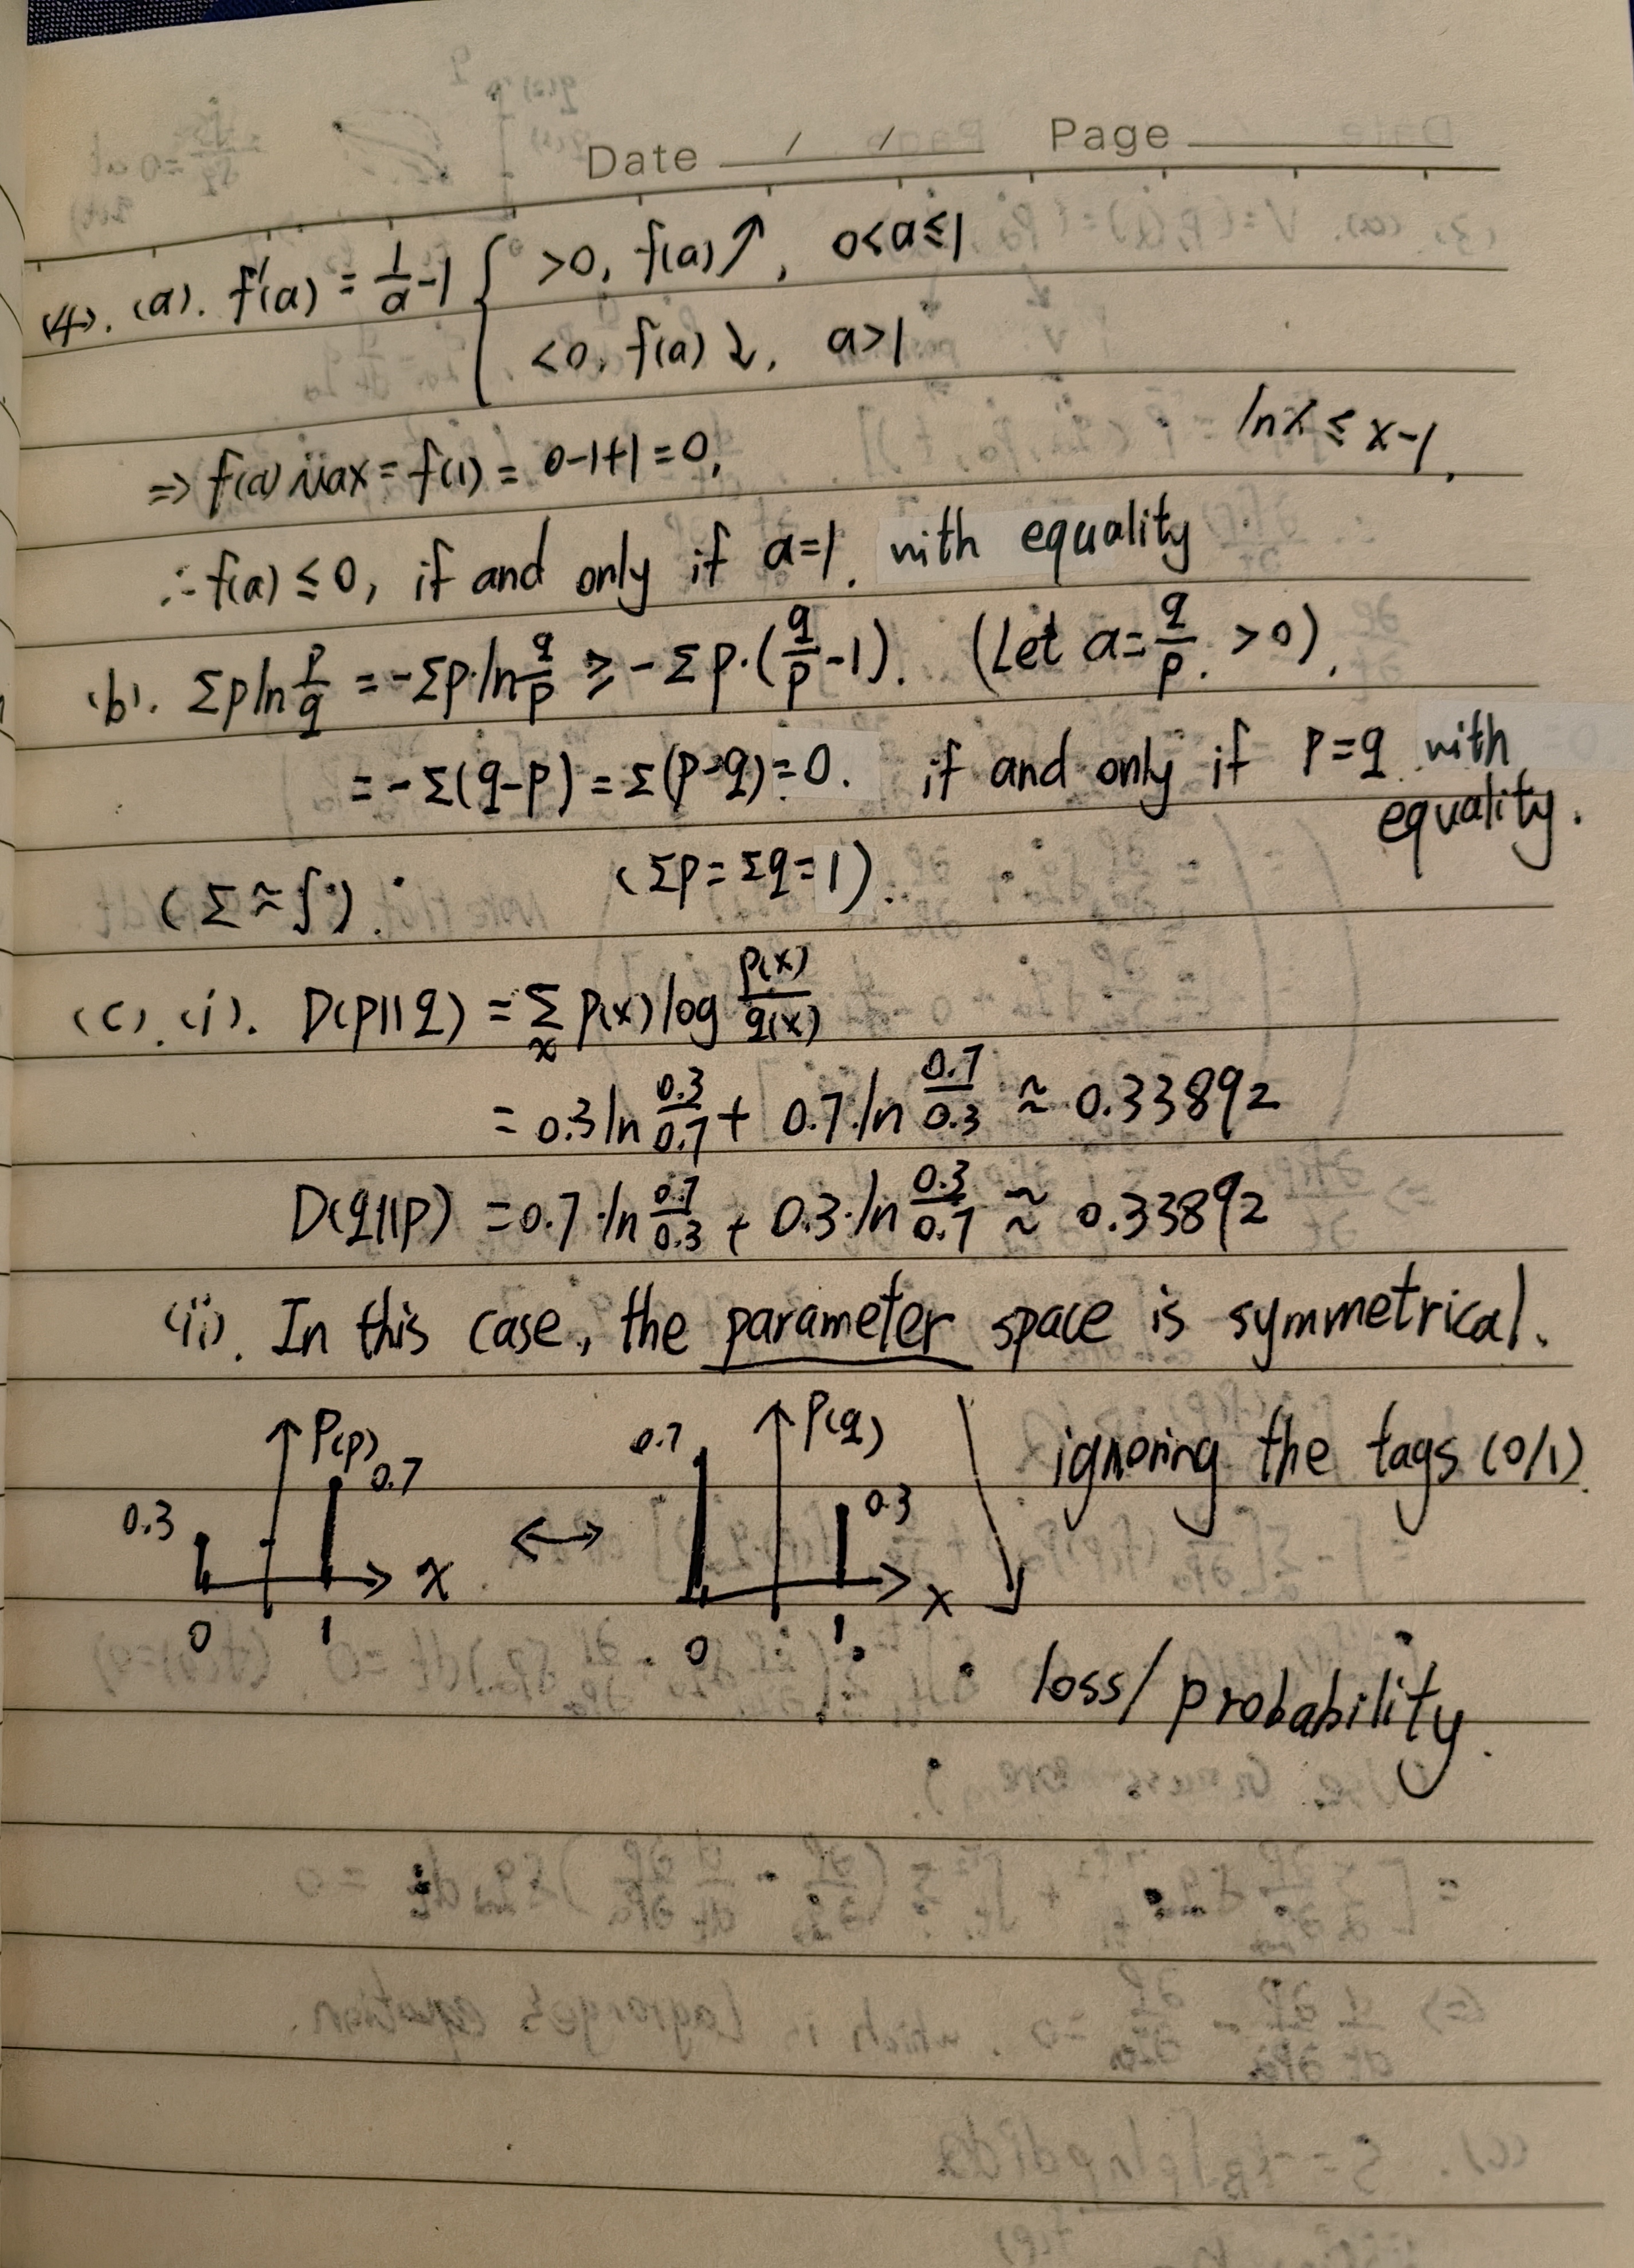 Date / / Page
(4). (a). f'(a) = 1/a - 1 { >0, f(a)↗, 0<a≤1
<0, f(a)↘, a>1
⇒ f(a) Max = f(1) = 0-1+1 = 0, ln x ≤ x-1.
∴ f(a) ≤ 0, if and only if a=1. with equality
(b). Σp ln p/q = -Σp·ln q/p ≥ -Σp·(q/p - 1). (Let a = q/p. >0).
= -Σ(q-p) = Σ(p-q) = 0. if and only if p=q with
equality.
(Σ≈∫). (Σp=Σq=1).
(c). (i). D(p||q) = Σ_x p(x) log p(x)/q(x)
= 0.3 ln 0.3/0.7 + 0.7·ln 0.7/0.3 ≈ 0.33892
D(q||p) = 0.7·ln 0.7/0.3 + 0.3·ln 0.3/0.7 ≈ 0.33892
(ii). In this case, the parameter space is symmetrical.
0.3 P(p) 0.7 x ↔ 0.7 P(q) 0.3 x ignoring the tags (0/1).
0 1 0 1
loss/probability.